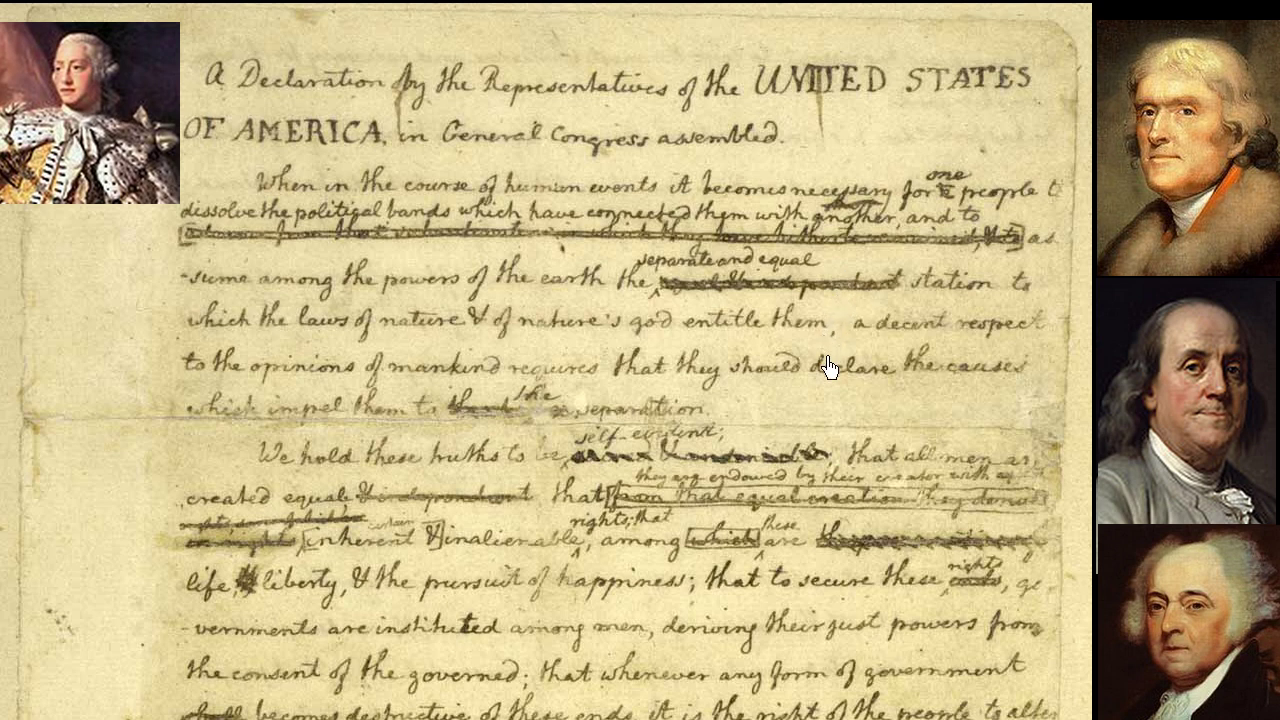 A Declaration by the Representatives of the UNITED STATES
OF AMERICA, in General Congress assembled.
When in the course of human events it becomes necessary for one people t
dissolve the political bands which have connected them with another, and to
as
separate and equal
-sume among the powers of the earth the station to
which the laws of nature & of nature's god entitle them, a decent respect
to the opinions of mankind requires that they should declare the causes
the
which impel them to separation.
self-evident;
We hold these truths to be that all men are
they are endowed by their creator with
created equal & independant that from that equal creation they
certain rights; that these
[inherent &] inalienable, among which are
rights
life liberty, & the pursuit of happiness; that to secure these , go
-vernments are instituted among men, deriving their just powers from
the consent of the governed; that whenever any form of government
becomes destructive of these ends, it is the right of the people to alter